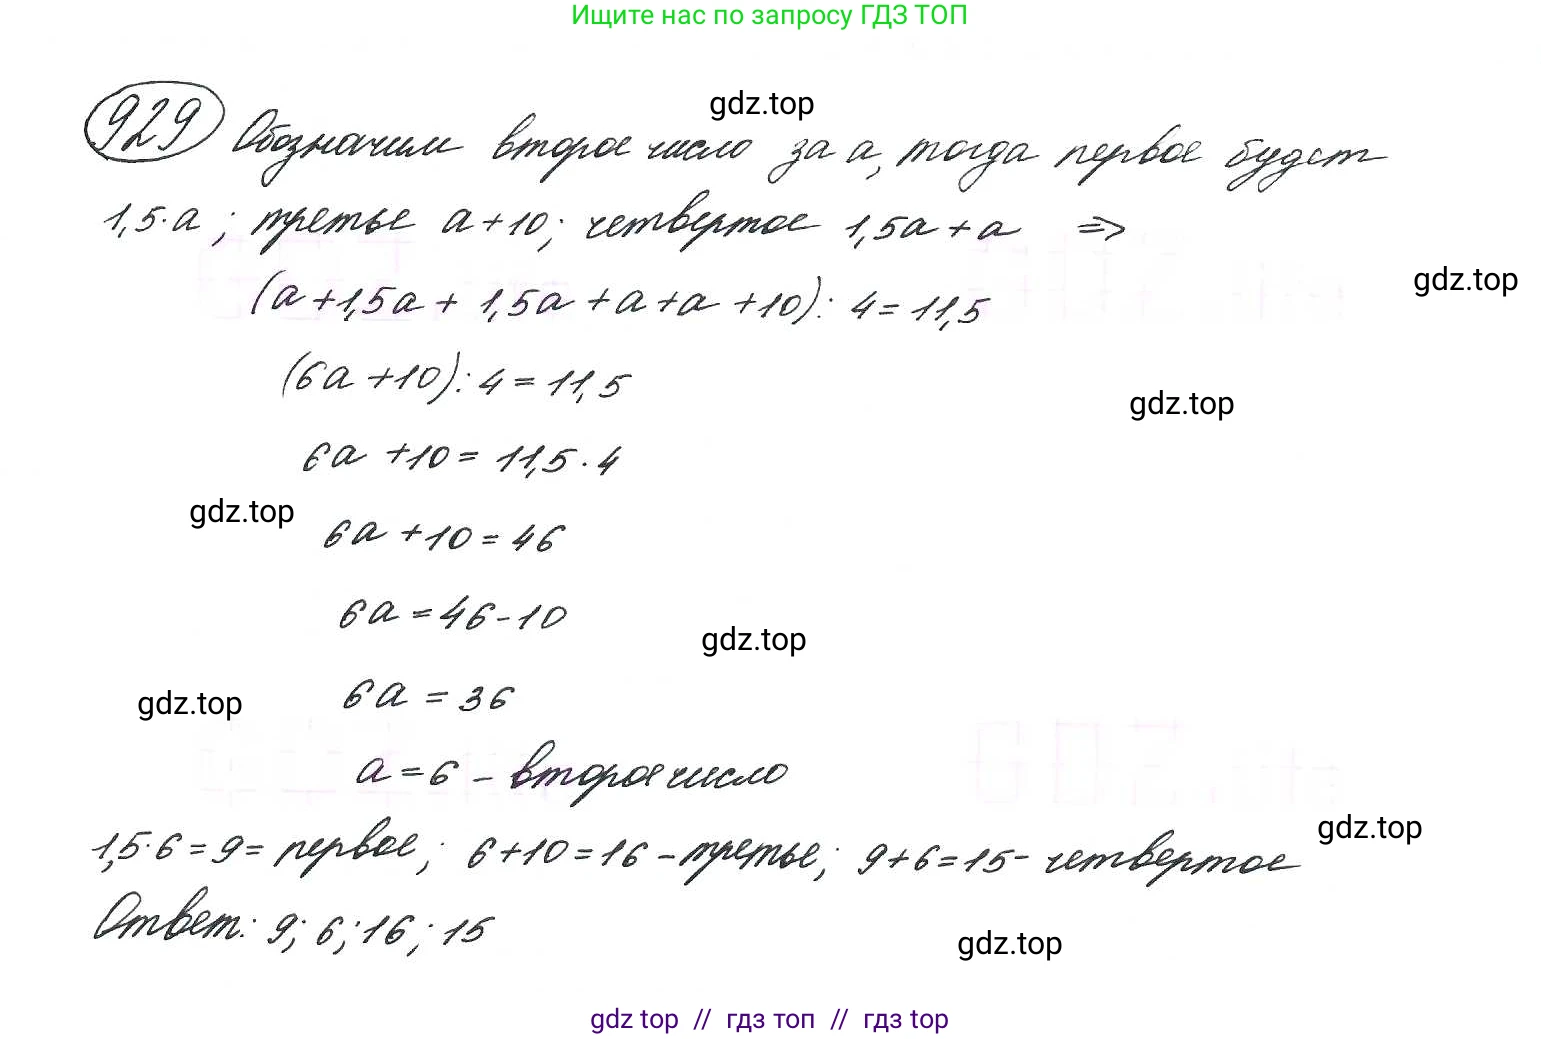 Ищите нас по запросу ГДЗ ТОП
gdz.top
929 Обозначим второе число за a, тогда первое будет
1,5·a ; третье a+10; четвертое 1,5a+a ⇒
gdz.top
(a+1,5a+ 1,5a+a+a+10): 4=11,5
(6a+10): 4=11,5
gdz.top
6a+10=11,5·4
gdz.top
6a+10=46
6a=46-10
gdz.top
6a=36
gdz.top
a=6 - второе число
gdz.top
1,5·6=9= первое; 6+10=16 - третье; 9+6=15- четвертое
Ответ: 9; 6; 16; 15
gdz.top
gdz top // гдз топ // гдз top